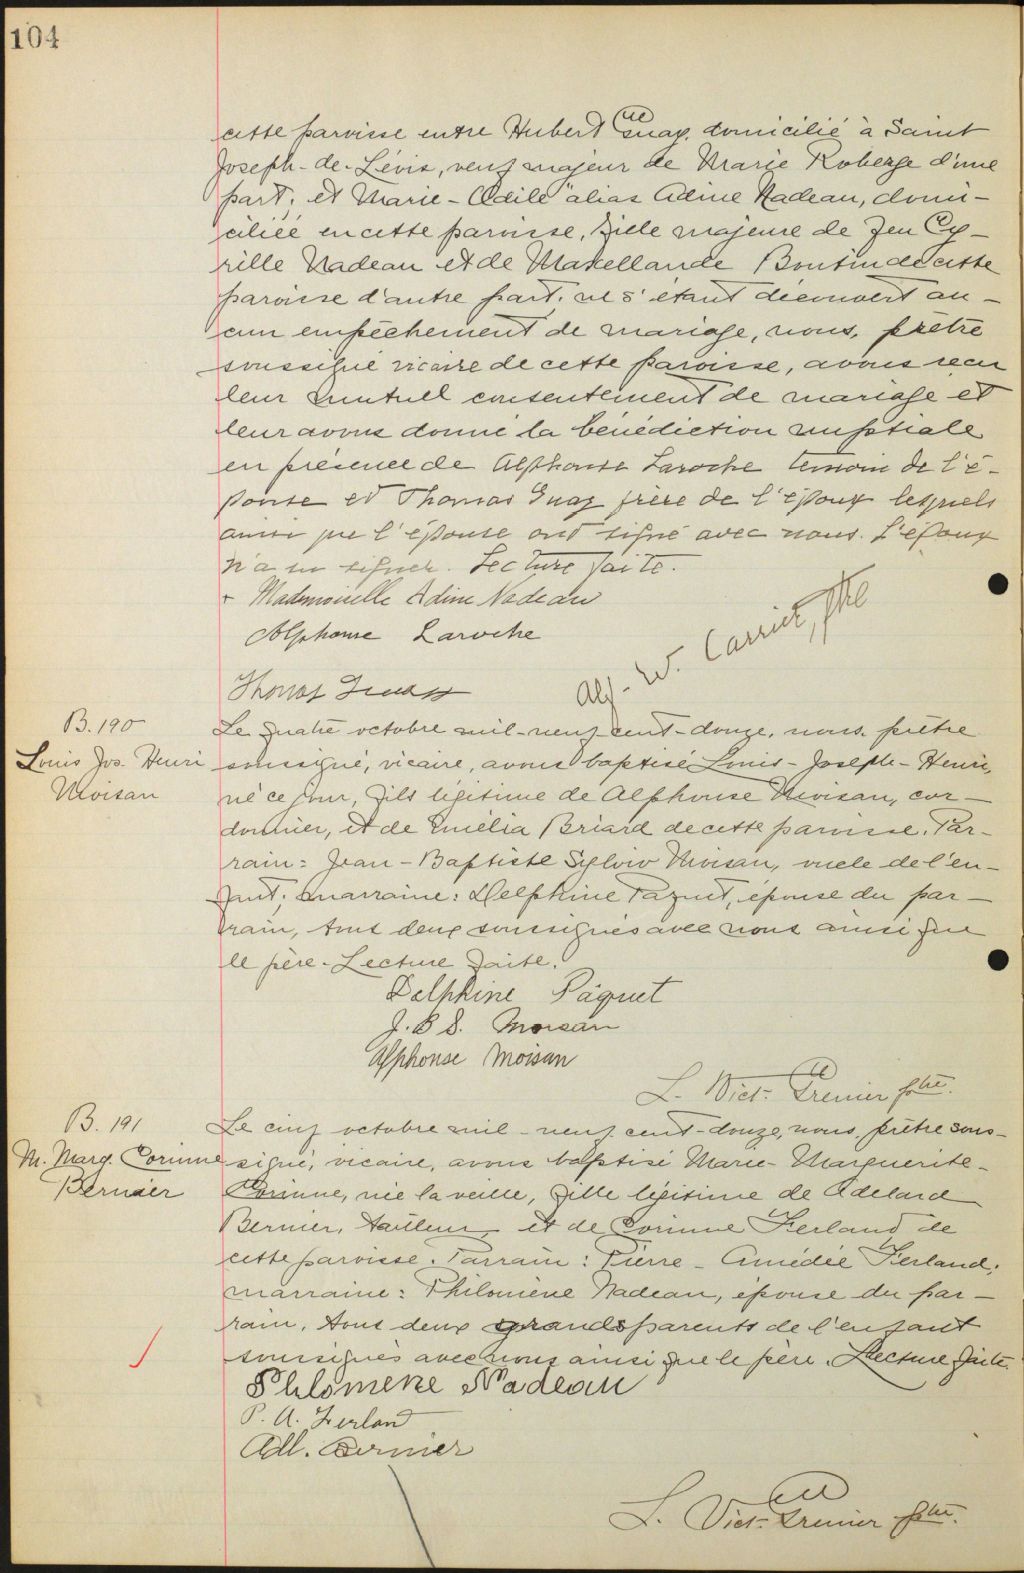 104
cette paroisse entre Hubert Guay, domicilié à Saint
Joseph-de-Lévis, veuf majeur de Marie Roberge d'une
part; et Marie-Odile "alias Adine Nadeau, domi-
ciliée en cette paroisse, fille majeure de feu Cy-
rille Nadeau et de Marcellande Boutin de cette
paroisse d'autre part; ne s'étant découvert au-
cun empêchement de mariage, nous, prêtre
soussigné vicaire de cette paroisse, avons reçu
leur mutuel consentement de mariage et
leur avons donné la bénédiction nuptiale
en présence de Alphonse Laroche témoin de l'é-
pouse et Thomas Guay frère de l'époux lesquels
ainsi que l'épouse ont signé avec nous. L'époux
n'a su signer. Lecture faite.
+ Mademoiselle Adine Nadeau
Alphonse Laroche
Alf. W. Carrier, ptre
Thomas Guay
B. 190
Louis Jos. Henri
Moisan
Le quatre octobre mil-neuf-cent-douze, nous, prêtre
soussigné, vicaire, avons baptisé Louis-Joseph-Henri,
né ce jour, fils légitime de Alphonse Moisan, cor-
donnier, et de Emélia Briard de cette paroisse. Par-
rain: Jean-Baptiste Sylvio Moisan, oncle de l'en-
fant; marraine: Delphine Paquet, épouse du par-
rain, tous deux soussignés avec nous ainsi que
le père. Lecture faite.
Delphine Pâquet
J. B S. Moisan
Alphonse Moisan
L. Vict. Grenier ptre.
B. 191
M. Marg. Corinne
Bernier
Le cinq octobre mil-neuf-cent-douze, nous, prêtre sous-
signé, vicaire, avons baptisé Marie-Marguerite-
Corinne, née la veille, fille légitime de Adelard
Bernier, tailleur et de Corinne Ferland de
cette paroisse. Parrain: Pierre-Amédée Ferland;
marraine: Philomène Nadeau, épouse du par-
rain, tous deux grands parents de l'enfant
soussignés avec nous ainsi que le père. Lecture faite.
Philomene Nadeau
P. A. Ferland
Adl. Bernier
L. Vict. Grenier ptre.